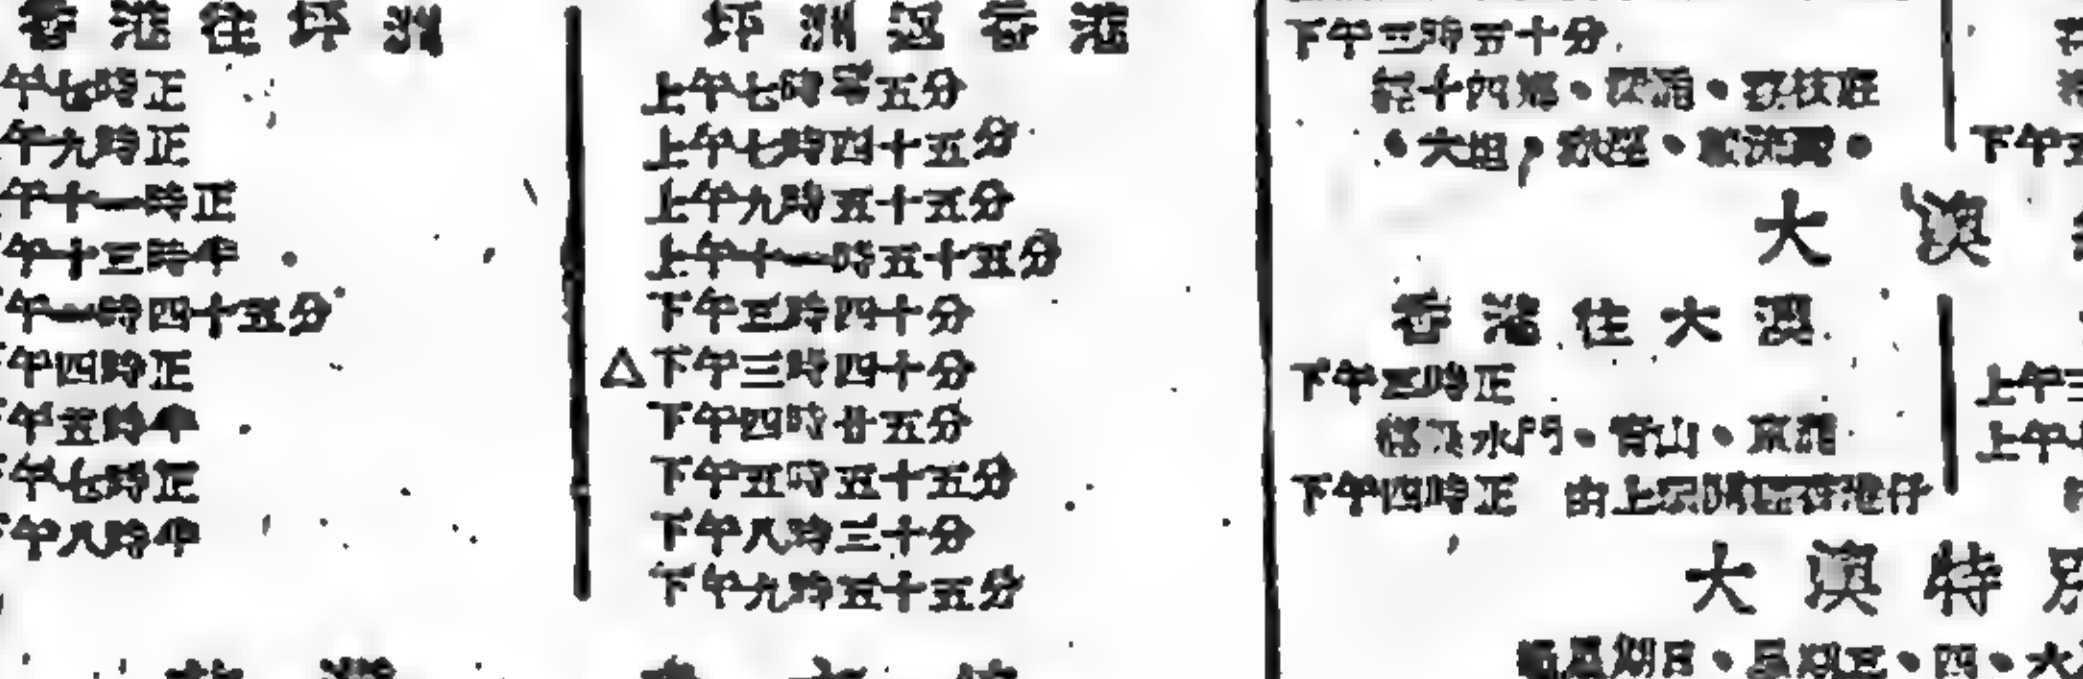 香港往坪洲
午七時正
午九時正
午十一時正
午十三時半
午一時四十五分
午四時正
午五時半
午七時正
午八時半
坪洲返香港
上午七時零五分
上午七時四十五分
上午九時五十五分
上午十一時五十五分
下午三時四十分
△下午三時四十分
下午四時廿五分
下午五時五十五分
下午八時三十分
下午九時五十五分
下午三時五十分
經十四鄉・深涌・荔枝莊
大澳
香港往大澳
下午三時正
水門・青山・東涌
下午四時正 由上環開經香港仔
上午三
上午
下午五
大澳特別
星期日・星期三・四・六